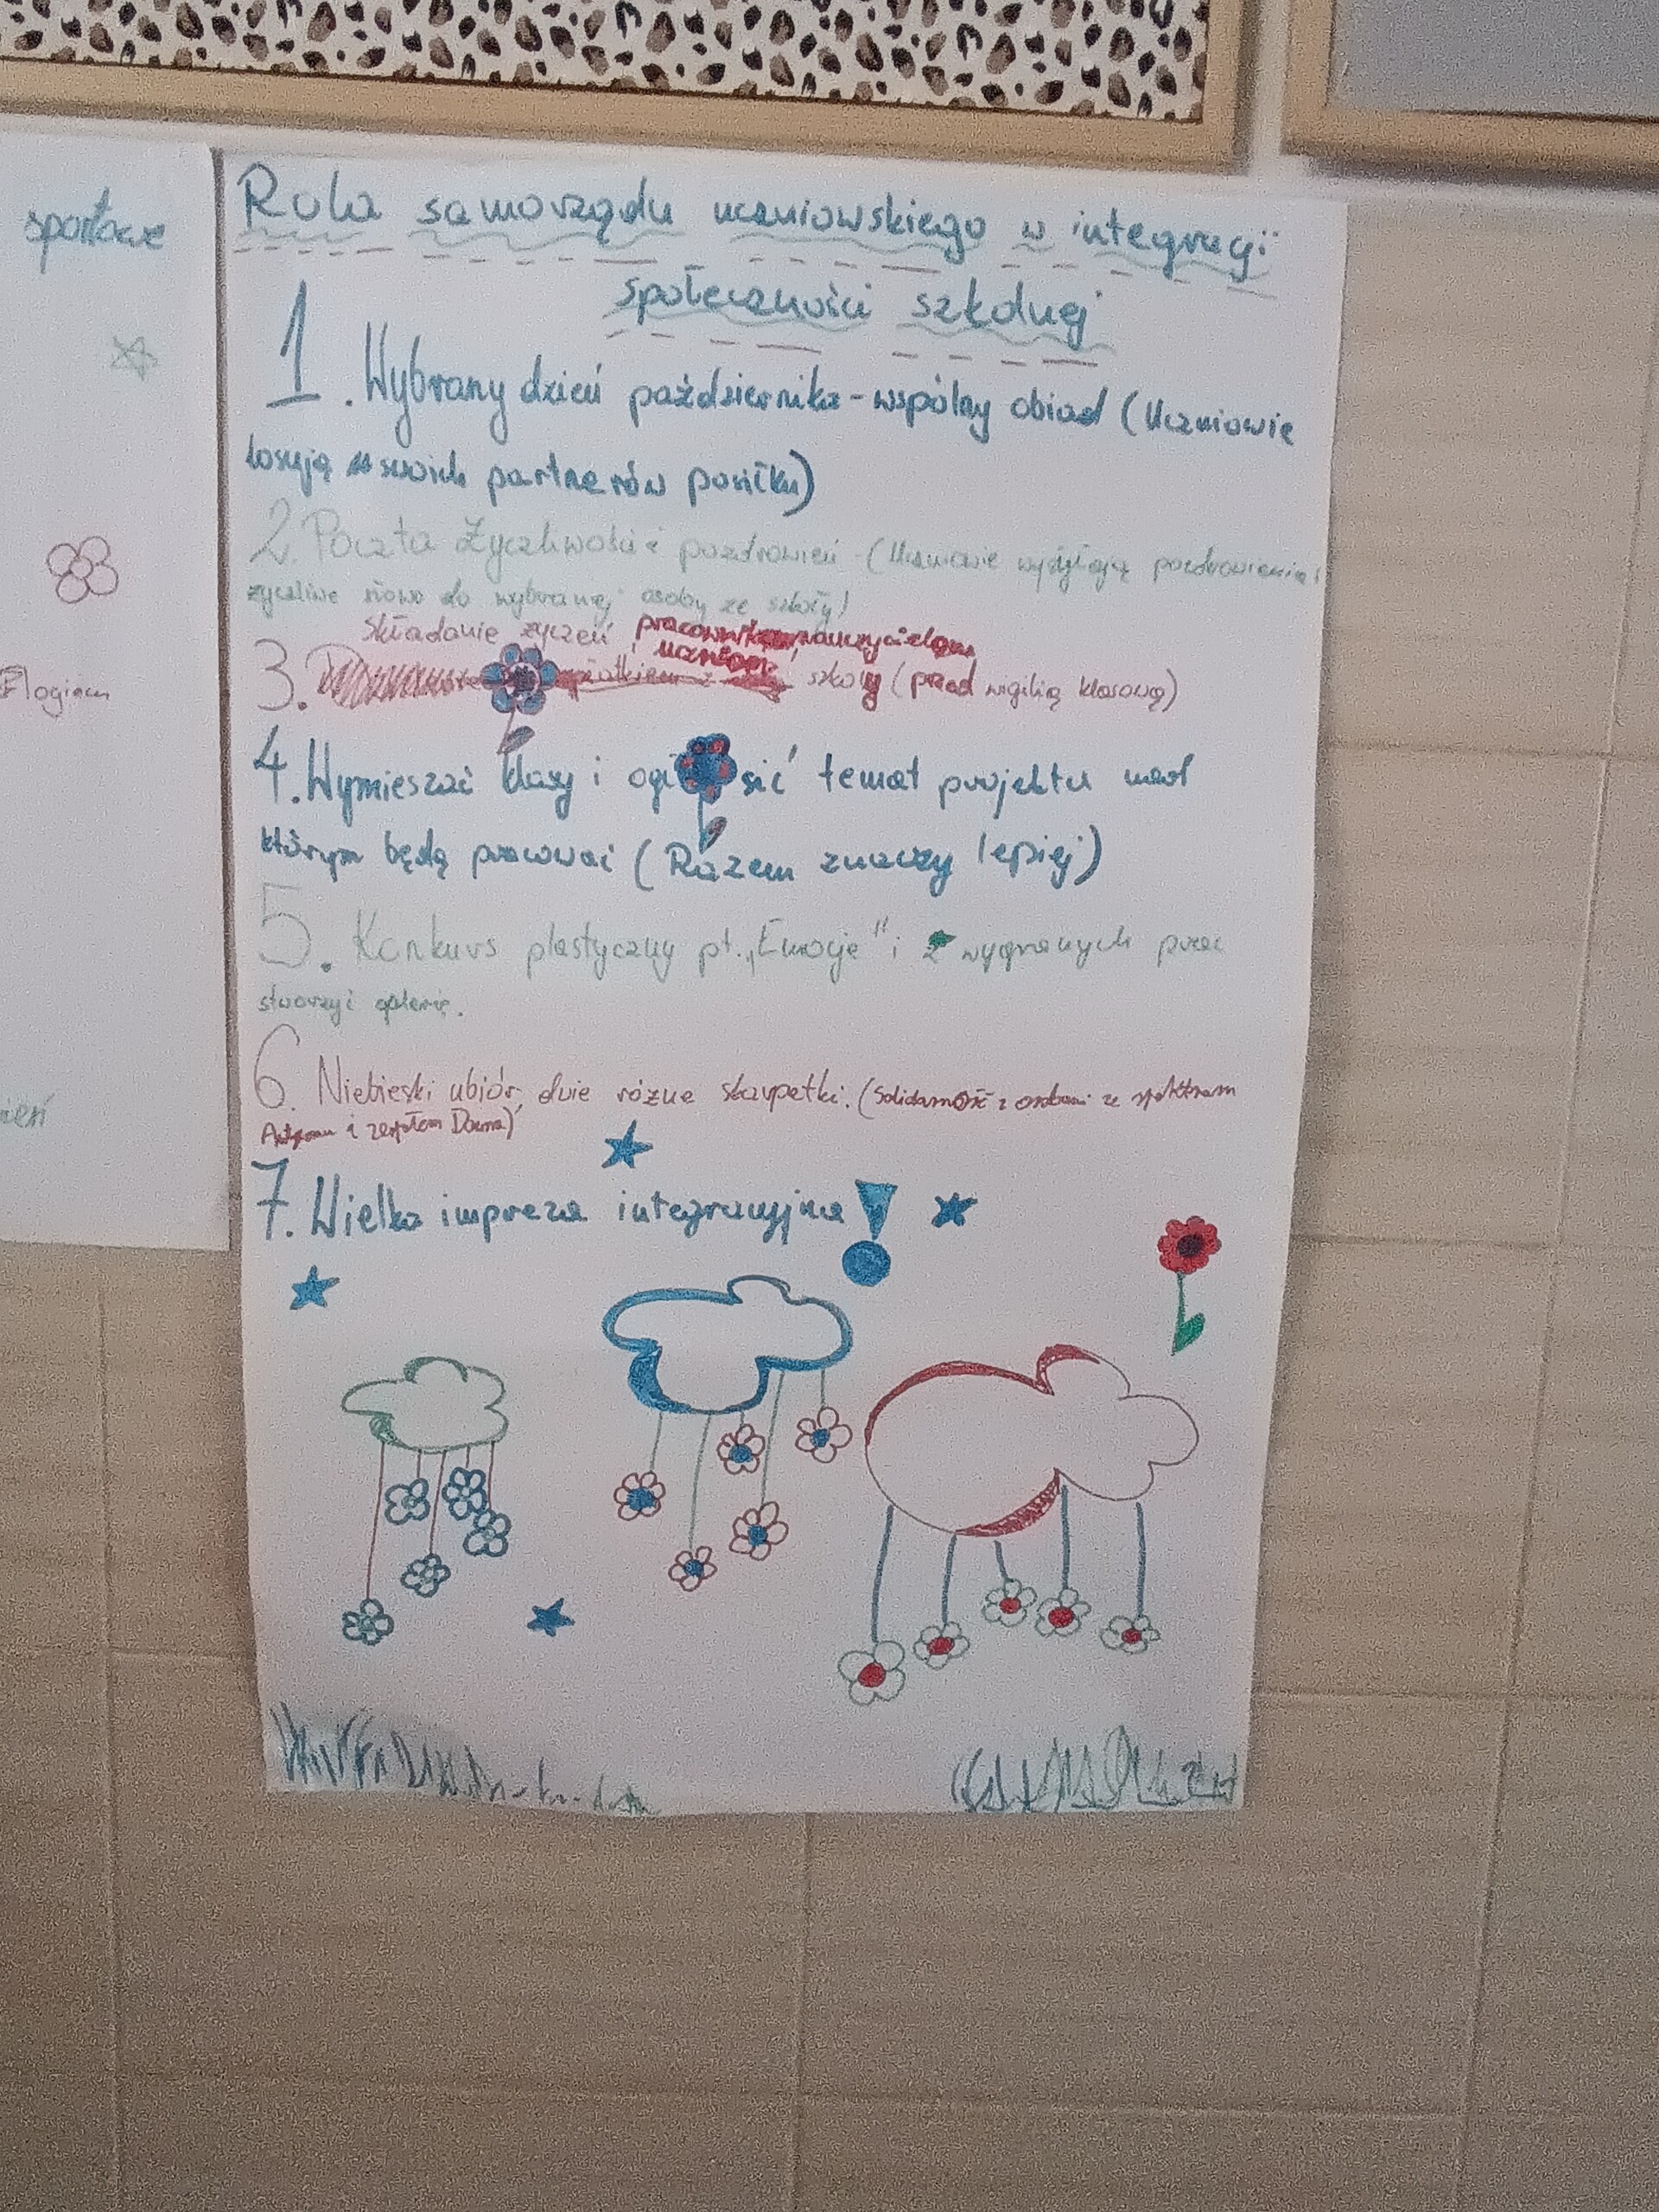 sportowe
Rola samorządu uczniowskiego w integracji
społeczności szkolnej
1. Wybrany dzień października - wspólny obiad (Uczniowie
losują swoich partnerów posiłku)
2. Poczta życzliwości i pozdrowień - (Uczniowie wysyłają pozdrowienia i
życzliwe słowa do wybranej osoby ze szkoły)
składanie życzeń pracownikom, nauczycielom,
uczniom
3. szkoły (przed wigilią klasową)
4. Wymieszać klasy i ogłosić temat projektu nad
którym będą pracować (Razem znaczy lepiej)
5. Konkurs plastyczny pt. „Emocje" i z wygranych prac
stworzyć galerię.
6. Niebieski ubiór, dwie różne skarpetki. (Solidarność z osobami ze spektrum
Autyzmu i zespołem Downa)
7. Wielka impreza integracyjna!